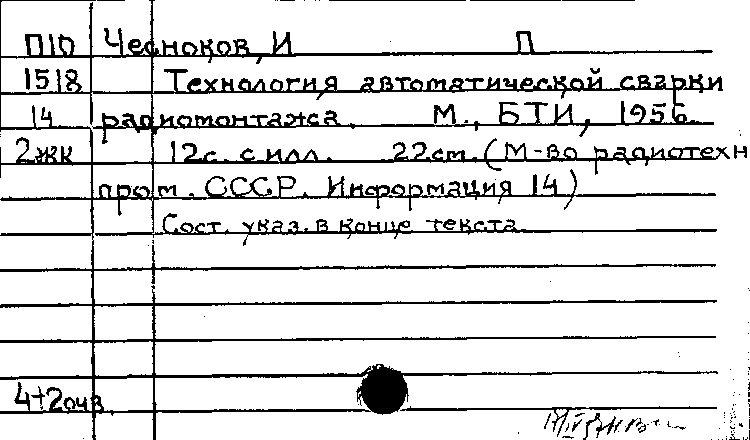 П10 Чесноков, И П
1518 Технология автоматической сварки
14 радиомонтажа. М., БТИ, 1956.
2жк 12с. с илл. 22см. (М-во радиотехн
пром. СССР. Информация 14)
Сост. указ. в конце текста
4+2очв.